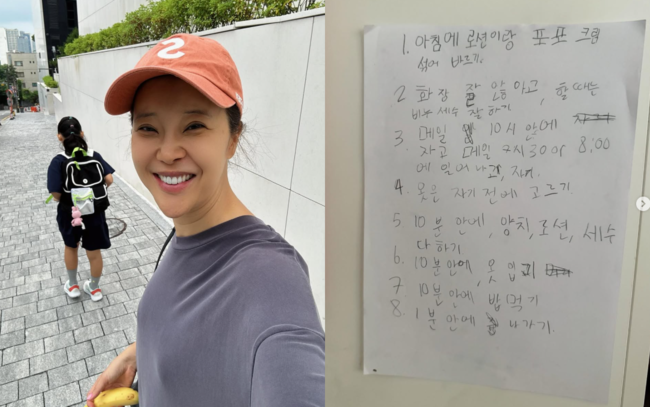 1. 아침에 로션이랑 포포 크림
섞어 바르기.
2 화장 잘 안하고, 할때는
비누 세수 잘하기
3. 매일 10시 안에
자고 매일 7시30 or 8:00
에 일어나
4. 옷은 자기 전에 고르기
5 10분 안에, 양치, 로션, 세수
다하기
6. 10분안에, 옷 입기
7 10분안에 밥먹기
8 1분 안에 나가기.